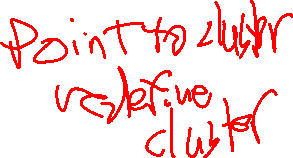 Point to cluster
redefine
cluster